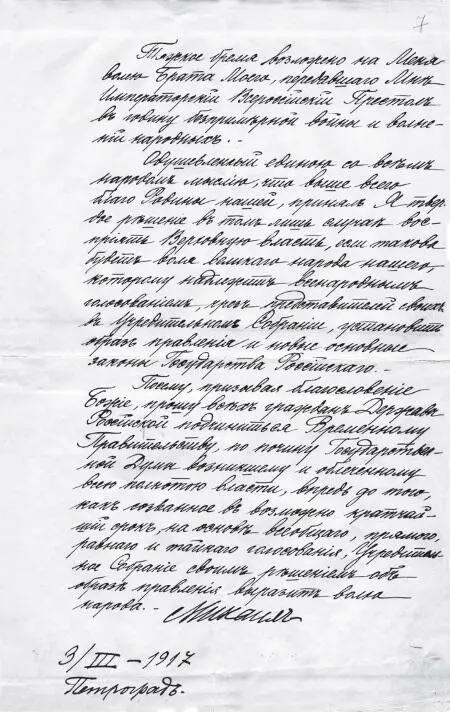 7
Тяжкое бремя возложено на Меня
волею Брата Моего, передавшаго Мнѣ
Императорскій Всероссійскій Престолъ
въ годину безпримѣрной войны и волне-
ній народныхъ.
Одушевленный единою со всѣмъ
народомъ мыслію, что выше всего
благо Родины нашей, принялъ Я твер-
дое рѣшеніе въ томъ лишь случаѣ вос-
пріять Верховную власть, если такова
будетъ воля великаго народа нашего,
которому надлежитъ всенароднымъ
голосованіемъ, чрезъ представителей своихъ
въ Учредительномъ Собраніи, установить
образъ правленія и новые основные
законы Государства Россійскаго.
Посему, призывая благословеніе
Божіе, прошу всѣхъ гражданъ Державы
Россійской подчиниться Временному
Правительству, по почину Государствен-
ной Думы возникшему и облеченному
всею полнотою власти, впредь до того,
какъ созванное въ возможно кратчай-
шій срокъ, на основѣ всеобщаго, прямого,
равнаго и тайнаго голосованія, Учредитель-
ное Собраніе своимъ рѣшеніемъ объ
образѣ правленія выразитъ волю
народа.
Михаилъ
3/III - 1917
Петроградъ.